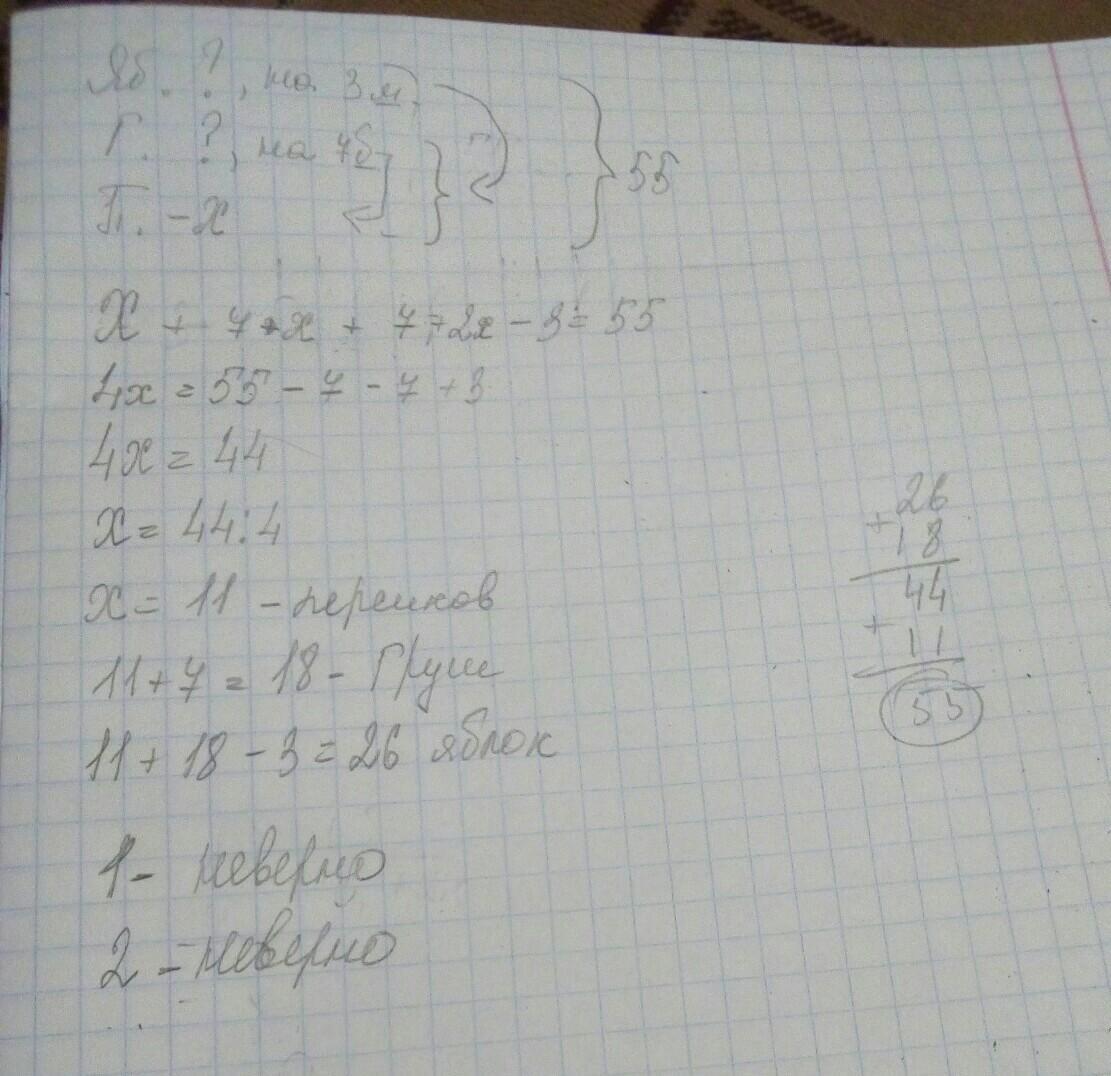 Яб. ?, на 3 м.
Г. ?, на 7б
П. - х
55
х + 7+х + 7+2х - 3 = 55
4х = 55 - 7 - 7 + 3
4х = 44
х = 44:4
х = 11 - персиков
11 + 7 = 18 - Груш
11 + 18 - 3 = 26 яблок
26
+
18
44
+
11
55
1 - неверно
2 - неверно